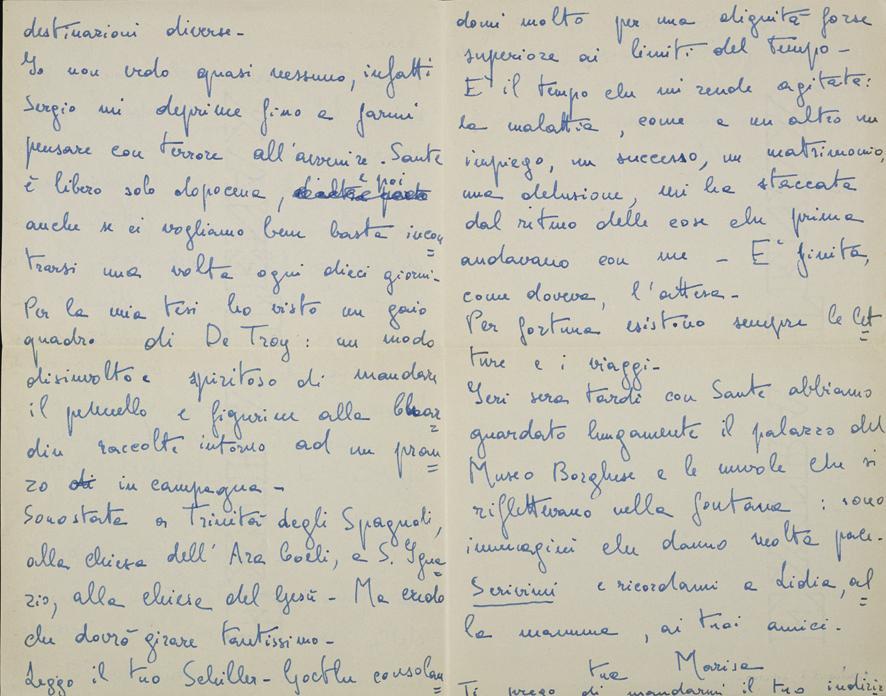 destinazioni diverse -
Io non vedo quasi nessuno, infatti
Sergio mi deprime fino a farmi
pensare con terrore all'avvenire. Sante
è libero solo dopocena, e poi
anche se ci vogliamo bene basta incon
trarsi una volta ogni dieci giorni -
Per la mia tesi ho visto un gaio
quadro di De Troy : un modo
disinvolto e spiritoso di mandare
il pennello e figurine alla
din raccolte intorno ad un pran
zo di in campagna -
Sono stata a Trinità degli Spagnoli,
alla chiesa dell' Ara Coeli, a S. Igna
zio, alla chiesa del Gesù - Ma credo
che dovrò girare tantissimo -
Leggo il tuo Schiller-Goethe consolan
domi molto per una dignità forse
superiore ai limiti del tempo -
E' il tempo che mi rende agitata:
la malattia, come a un altro un
impiego, un successo, un matrimonio,
una delusione, mi ha staccata
dal ritmo delle cose che prima
andavano con me - E' finita,
come doveva, l'attesa -
Per fortuna esistono sempre le let
ture e i viaggi -
Ieri sera tardi con Sante abbiamo
guardato lungamente il palazzo del
Museo Borghese e le nuvole che si
riflettevano nella fontana : sono
immagini che danno molta pace.
Scrivimi e ricordami a Lidia, al
la mamma, ai tuoi amici.
tua Marisa
Ti prego di mandarmi il tuo indiriz